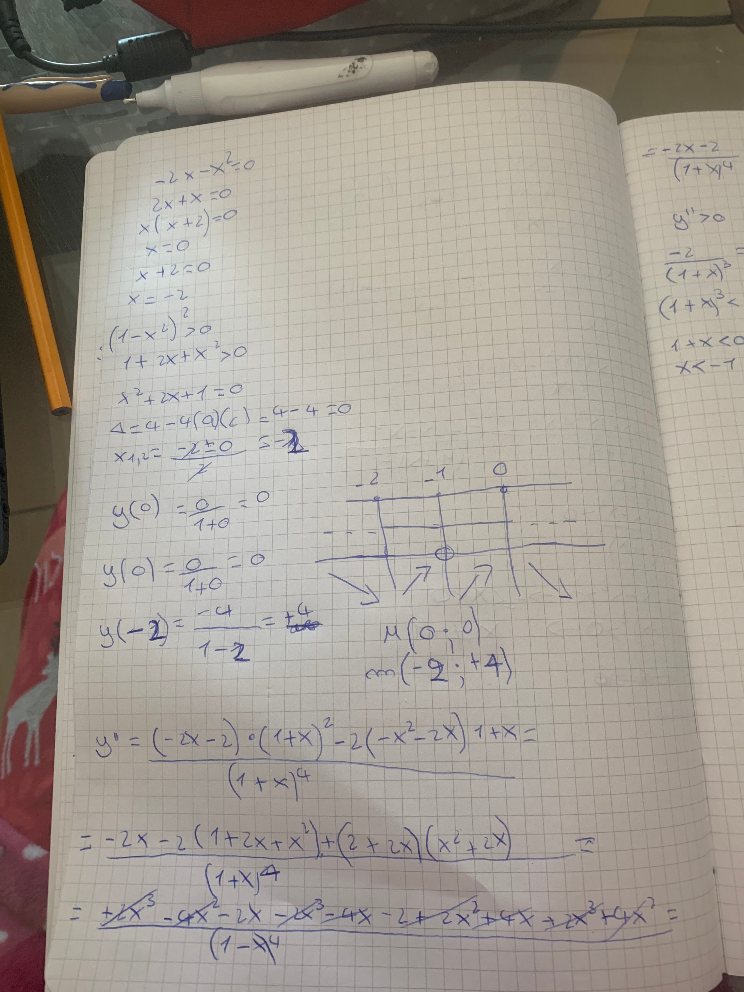 -2x-x²=0
2x+x=0
x(x+2)=0
x=0
x+2=0
x=-2
(1-x²)²>0
1+2x+x²>0
x²+2x+1=0
Δ=4-4(a)(c)=4-4=0
x1,2= -2±0/2 =-1
y(0) = 0/1+0 = 0
y(0) = 0/1+0 = 0
y(-2) = -4/1-2 = +4
-2 -1 0
M(0;0)
m(-2;+4)
y" = (-2x-2)·(1+x)²-2(-x²-2x) 1+x / (1+x)⁴ =
= -2x-2(1+2x+x²)+(2+2x)(x²+2x) / (1+x)⁴ =
= +2x³-4x²-2x-2x³-4x-2+2x²+4x+2x³+4x² / (1-x)⁴ =
= -2x-2 / (1+x)⁴
y">0
-2 / (1+x)³ =
(1+x)³<
1+x<0
x<-1